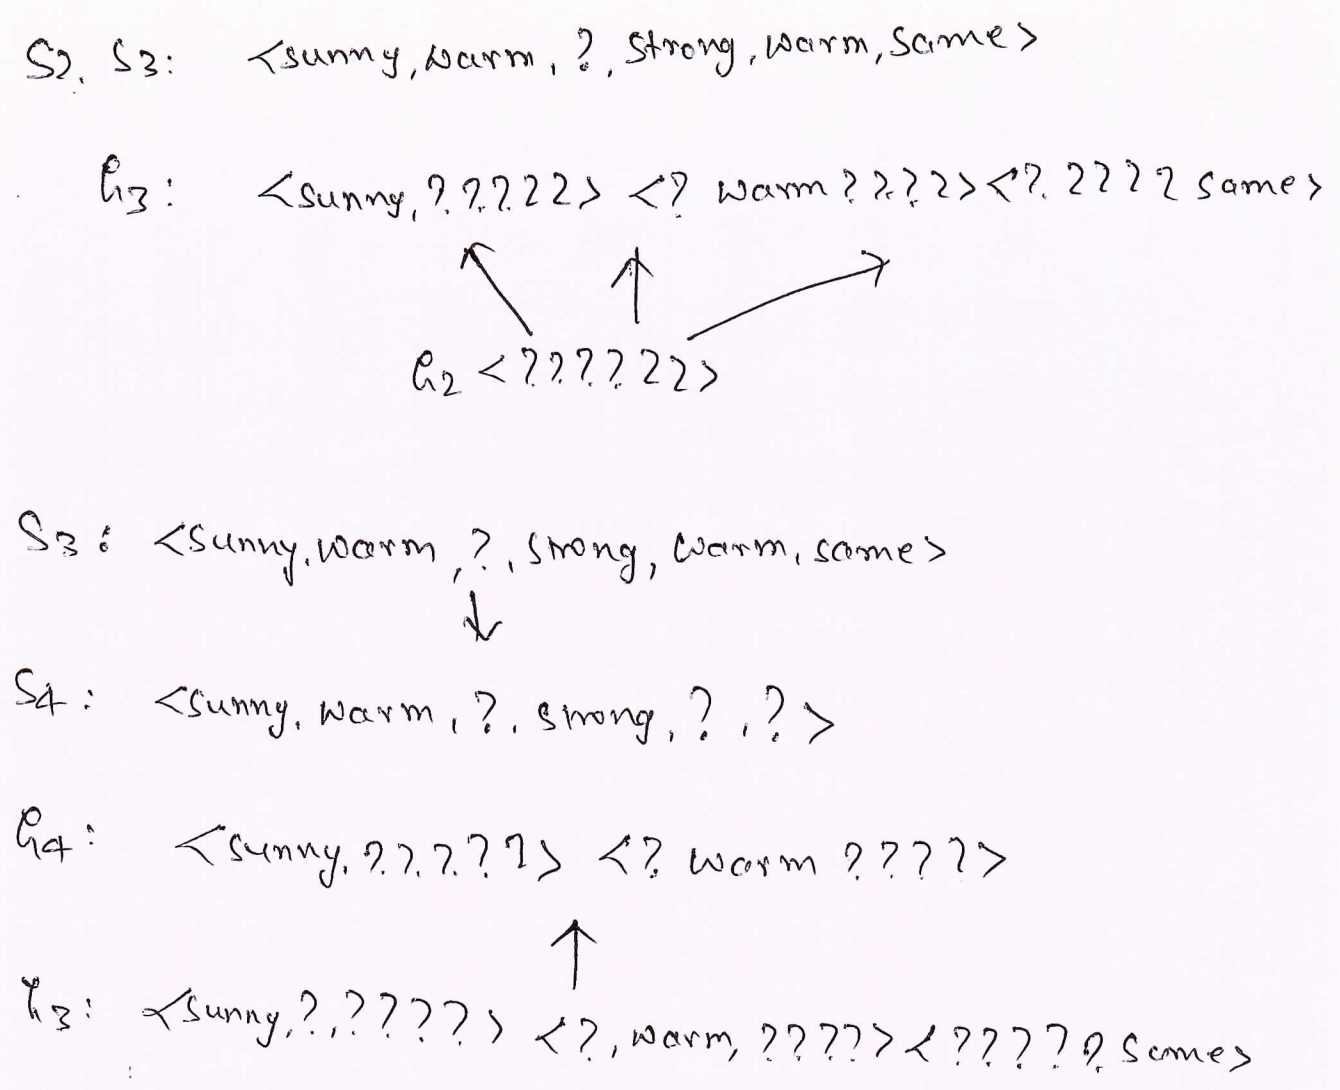 S2, S3: <sunny, warm, ?, strong, warm, same>
G3: <sunny, ? ? ? ? ?> <? warm ? ? ? ?> <? ? ? ? ? same>
G2 <? ? ? ? ? ?>
S3: <sunny, warm, ?, strong, warm, same>
S4: <sunny, warm, ?, strong, ?, ?>
G4: <sunny, ? ? ? ? ?> <? warm ? ? ? ?>
G3: <sunny, ?, ? ? ? ?> <?, warm, ? ? ? ?> <? ? ? ? ? same>